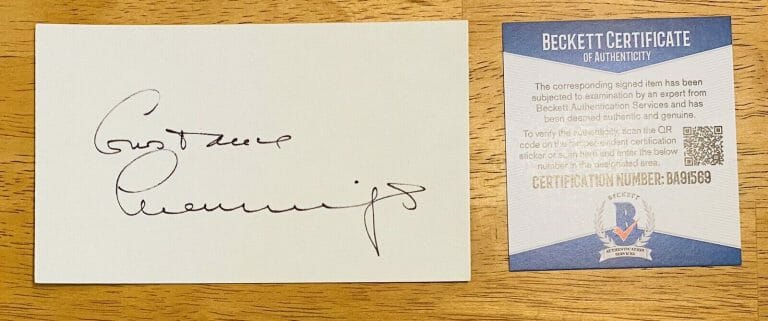 Constance
Cummings
BECKETT CERTIFICATE
OF AUTHENTICITY
The corresponding signed item has been
subjected to examination by an expert from
Beckett Authentication Services and has
been deemed authentic and genuine.
To verify the authenticity, scan the QR
code on the tamper-evident certification
sticker or scan here and enter the below
number in the designated area.
CERTIFICATION NUMBER: BA91569
BECKETT
B
AUTHENTICATION
SERVICES